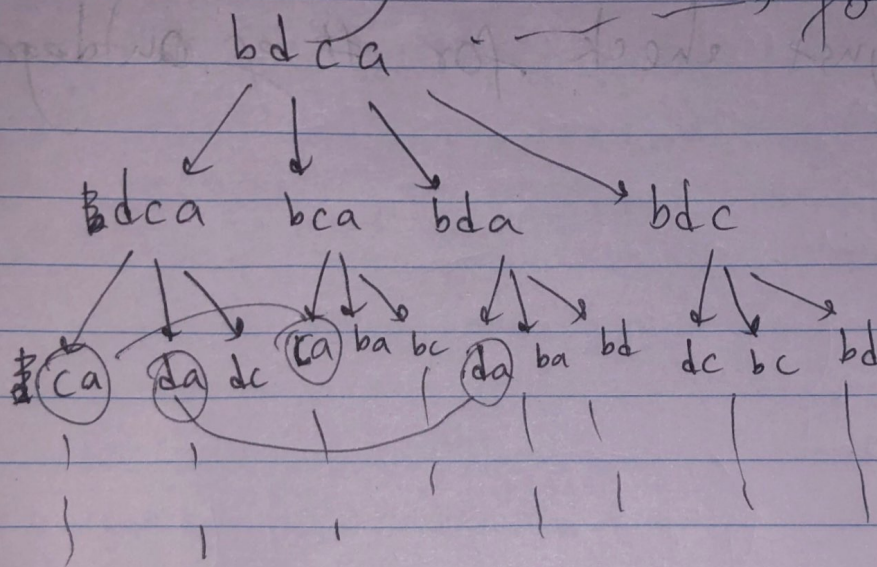 bdca
dca bca bda bdc
ca da dc ca ba bc da ba bd dc bc bd